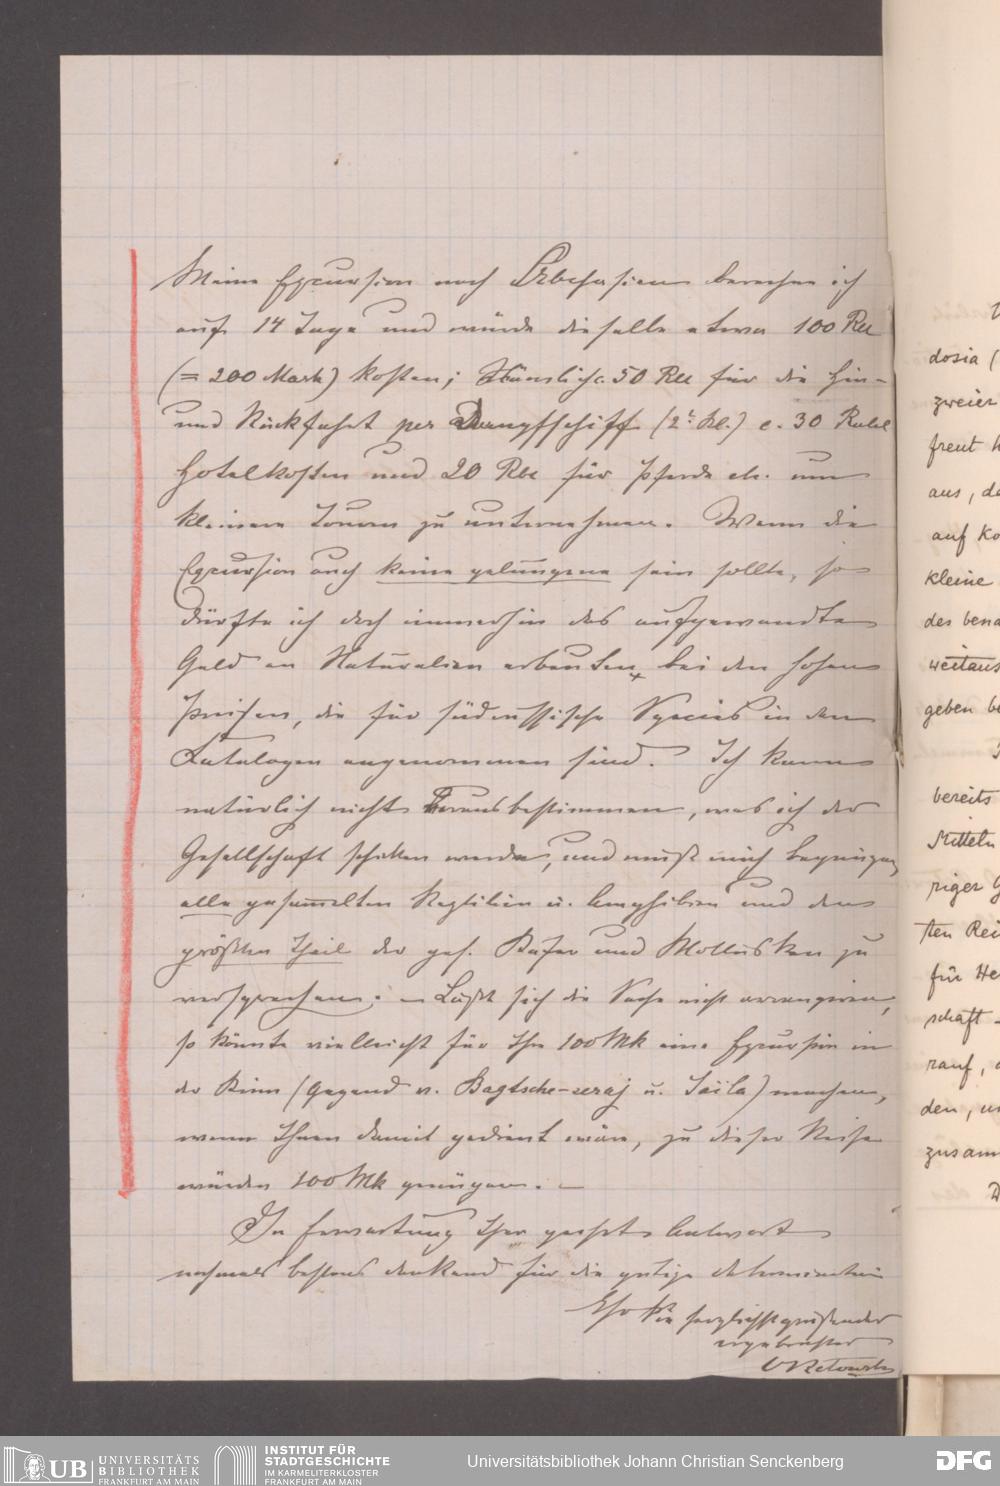 Meine Excursion nach Abchasien berechne ich
auf 14 Tage und würde dieselbe etwa 100 Rbl
(= 200 Mark) kosten; Nämlich c. 50 Rbl für die Hin-
und Rückfahrt per Dampfschiff (2t. Kl.) c. 30 Rubel
Hotelkosten und 20 Rbl für Pferde etc. um
kleinere Touren zu unternehmen. Wenn die
Excursion auch keine gelungene sein sollte, so
dürfte ich doch immerhin das aufgewandte
Geld an Naturalien erbeuten, bei den hohen
Preisen, die für südrussische Species in den
Katalogen angenommen sind. Ich kann
natürlich nicht voraus bestimmen, was ich der
Gesellschaft schicken werde, und muß mich begnügen
alle gesammelten Reptilien u. Amphibien und den
größten Theil der ges. Käfer und Mollusken zu
versprechen. – Läßt sich die Sache nicht arrangiren,
so könnte vielleicht für Ihre 100 Mk eine Excursion in
der Krim (Gegend v. Bagtsche-seraj u. Jaila) machen,
wenn Ihnen damit gedient wäre, zu dieser Reise
würden 100 Mk genügen. –
In Erwartung Ihrer geehrten Antwort
nochmals bestens dankend für die gütige determination
herzlichst grüßender
ergebenster
O Retowski
dosia (
zweier
freut
aus, d
auf Ko
kleine
des bena
weitaus
geben be
bereits
Mitteln
riger G
sten Rei
für He
schaft –
rauf,
den, u
zusam
D
UB UNIVERSITÄTS
BIBLIOTHEK
FRANKFURT AM MAIN
INSTITUT FÜR
STADTGESCHICHTE
IM KARMELITERKLOSTER
FRANKFURT AM MAIN
Universitätsbibliothek Johann Christian Senckenberg
DFG